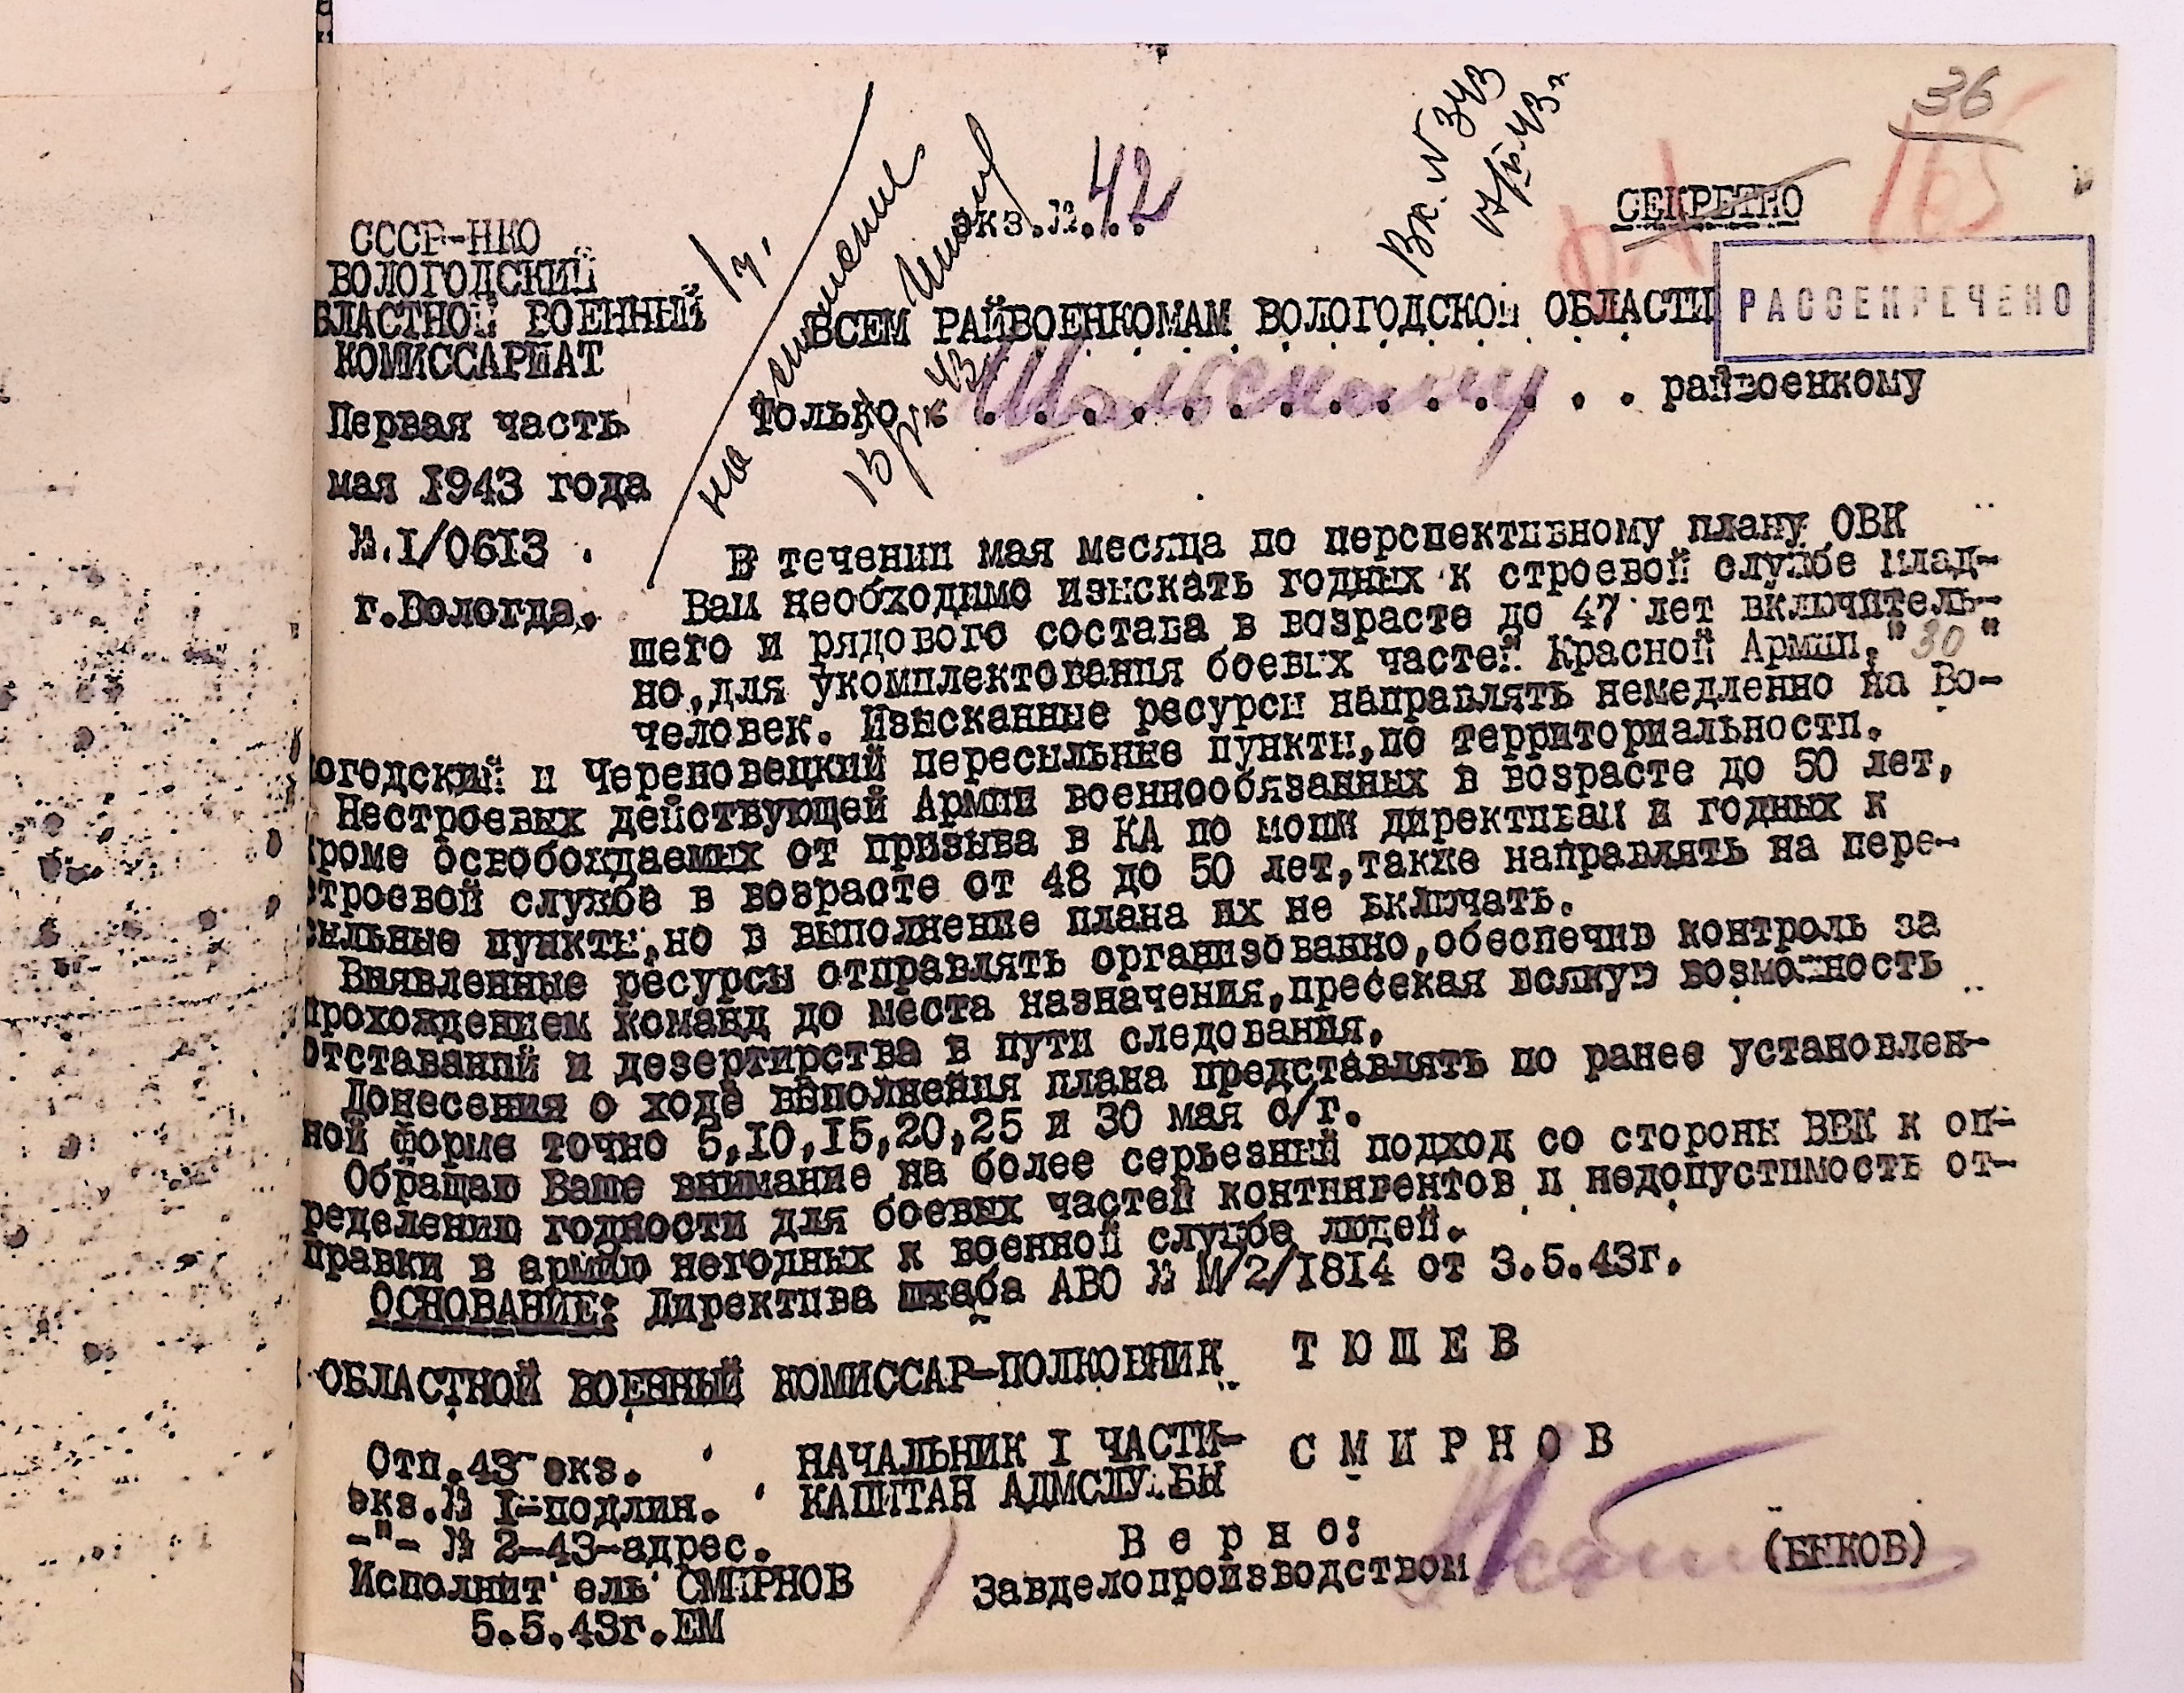 36
165
экз.№.42
Вх. N 343
СЕКРЕТНО
РАССЕКРЕЧЕНО
СССР-НКО
ВОЛОГОДСКИЙ
БЛАСТНОЙ ВОЕННЫЙ
КОМИССАРИАТ
Первая часть
мая 1943 года
№.I/0613 .
г.Вологда.
ВСЕМ РАЙВОЕНКОМАМ ВОЛОГОДСКОЙ ОБЛАСТИ
только Шольскому . . райвоенкому
В течении мая месяца по перспективному плану ОВК
Вам необходимо изыскать годных к строевой службе млад-
шего и рядового состава в возрасте до 47 лет включитель-
но,для укомплектования боевых частей Красной Армии, "30"
человек. Изысканные ресурсы направлять немедленно на Во-
огодский и Череповецкий пересыльные пункты,по территориальности.
Нестроевых действующей Армии военнообязанных в возрасте до 50 лет,
кроме освобождаемых от призыва в КА по моим директивам и годных к
строевой службе в возрасте от 48 до 50 лет,также направлять на пере-
сыльные пункты,но в выполнение плана их не включать.
Выявленные ресурсы отправлять организованно,обеспечив контроль за
прохождением команд до места назначения,пресекая всякую возможность
отставаний и дезертирства в пути следования.
Донесения о ходе выполнения плана представлять по ранее установлен-
ной форме точно 5,10,15,20,25 и 30 мая с/г.
Обращаю Ваше внимание на более серьезный подход со стороны ВВК к оп-
ределению годности для боевых частей контингентов и недопустимость от-
правки в армию негодных к военной службе людей.
ОСНОВАНИЕ: Директива штаба АВО № М/2/1814 от 3.5.43г.
ОБЛАСТНОЙ ВОЕННЫЙ КОМИССАР-ПОЛКОВНИК Т Ю Ш Е В
НАЧАЛЬНИК I ЧАСТИ-
КАПИТАН АДМСЛУЖБЫ С М И Р Н О В
Отп.43 экз.
экз.№ I-подлин.
-"- № 2-43-адрес.
Исполнит ель СМИРНОВ
5.5.43г.ЕМ
В е р н о:
Завделопроизводством (БЫКОВ)